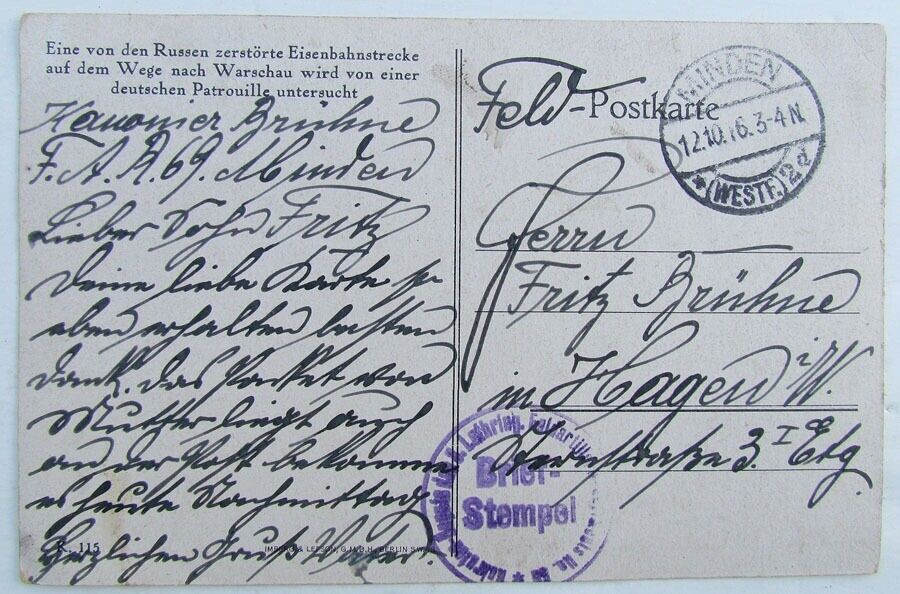 Eine von den Russen zerstörte Eisenbahnstrecke
auf dem Wege nach Warschau wird von einer
deutschen Patrouille untersucht
Kanonier Brühne
F. A. R. 69. Minden
Lieber Sohn Fritz
Deine liebe Karte so
eben erhalten besten
Dank. Das Packet von
Mutter liegt auch
an der Post bekomme
es heute Nachmittag
Herzlichen Gruß Vater.
K. 115
G.M.B.H., BERLIN
Feld-Postkarte
MINDEN
12.10.16.3-4 N.
*(WESTF.)2d
Herrn
Fritz Brühne
in Hagen i/W.
Sternstraße 3. I Etg
Brief-
Stempel